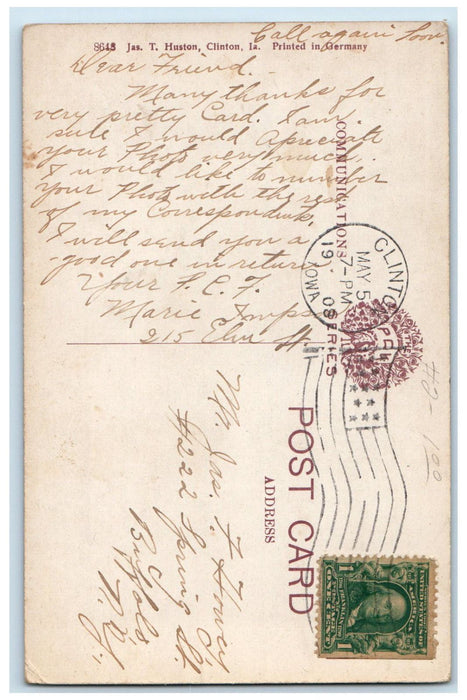 8643 Jas. T. Huston, Clinton, Ia. Printed in Germany
Call again Soon
Dear Friend.
Many thanks for
very pretty Card. I am
sure I would Apreciate
your Photo very much.
I would like to number
your Photo with the rest
of my Correspondents,
I will send you a
good one in return
Your P. C. F.
Marie
215 Elm St.
COMMUNICATIONS
SERIES
CLINTON
MAY 5
7-PM
19
IOWA
POST CARD
ADDRESS
Mr. Jas. F. Henry
#222 Spring St.
Buffalo
N.Y.
100
UNITED STATES OF AMERICA
1
ONE CENT
1